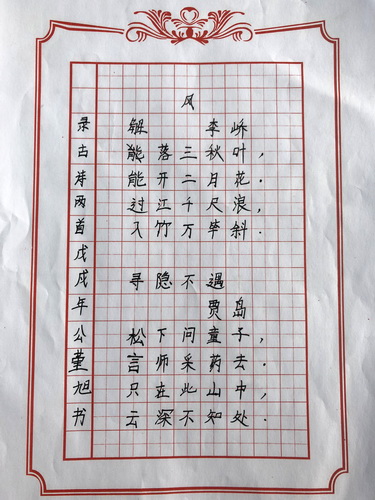 风
解 李峤
能落三秋叶,
能开二月花.
过江千尺浪,
入竹万竿斜.
寻隐不遇
贾岛
松下问童子,
言师采药去.
只在此山中,
云深不知处.
录古诗两首戊戌年公堇旭书